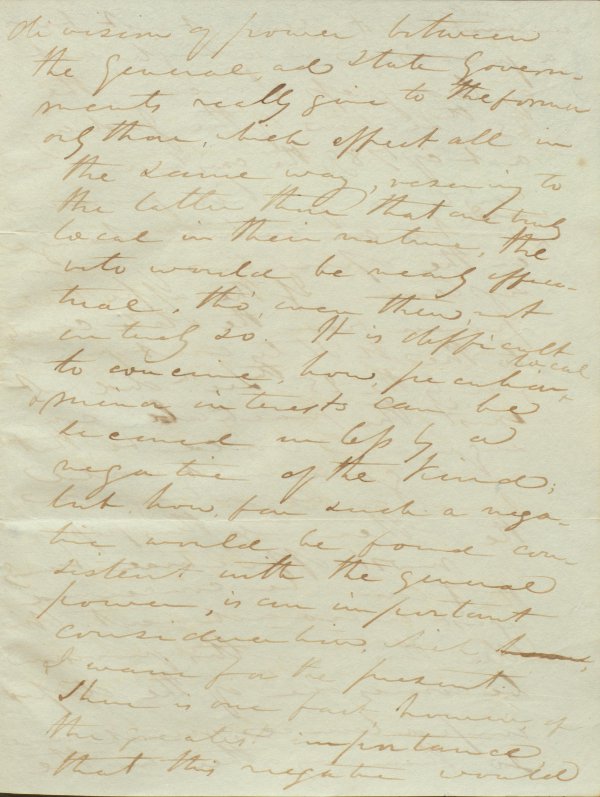 division of power between
the General, ad State Govern-
ments really give to the former
only those, which effect all in
the same way, reserving to
the latter those that are truly
local in their nature, the
veto would be nearly effec-
tual, tho', even then, not
entirely so. It is difficult
to conceive, how, peculiar local
& minor interests can be
secured unless by a
negative of the kind;
but how far such a nega-
tive would be found con-
sistent with the general
power, is an important
consideration, which,
I waive for the present.
There is one fact, however, of
the greatest importance,
that this negative would